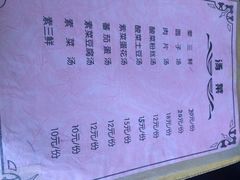 汤菜
荤三鲜 20元/份
圆子汤
肉片汤 18元/份
酸菜粉丝汤
酸菜土豆汤 15元/份
紫菜蛋花汤 12元/份
番茄蛋汤 12元/份
素菜豆腐汤 12元/份
素菜汤 10元/份
素三鲜 10元/份